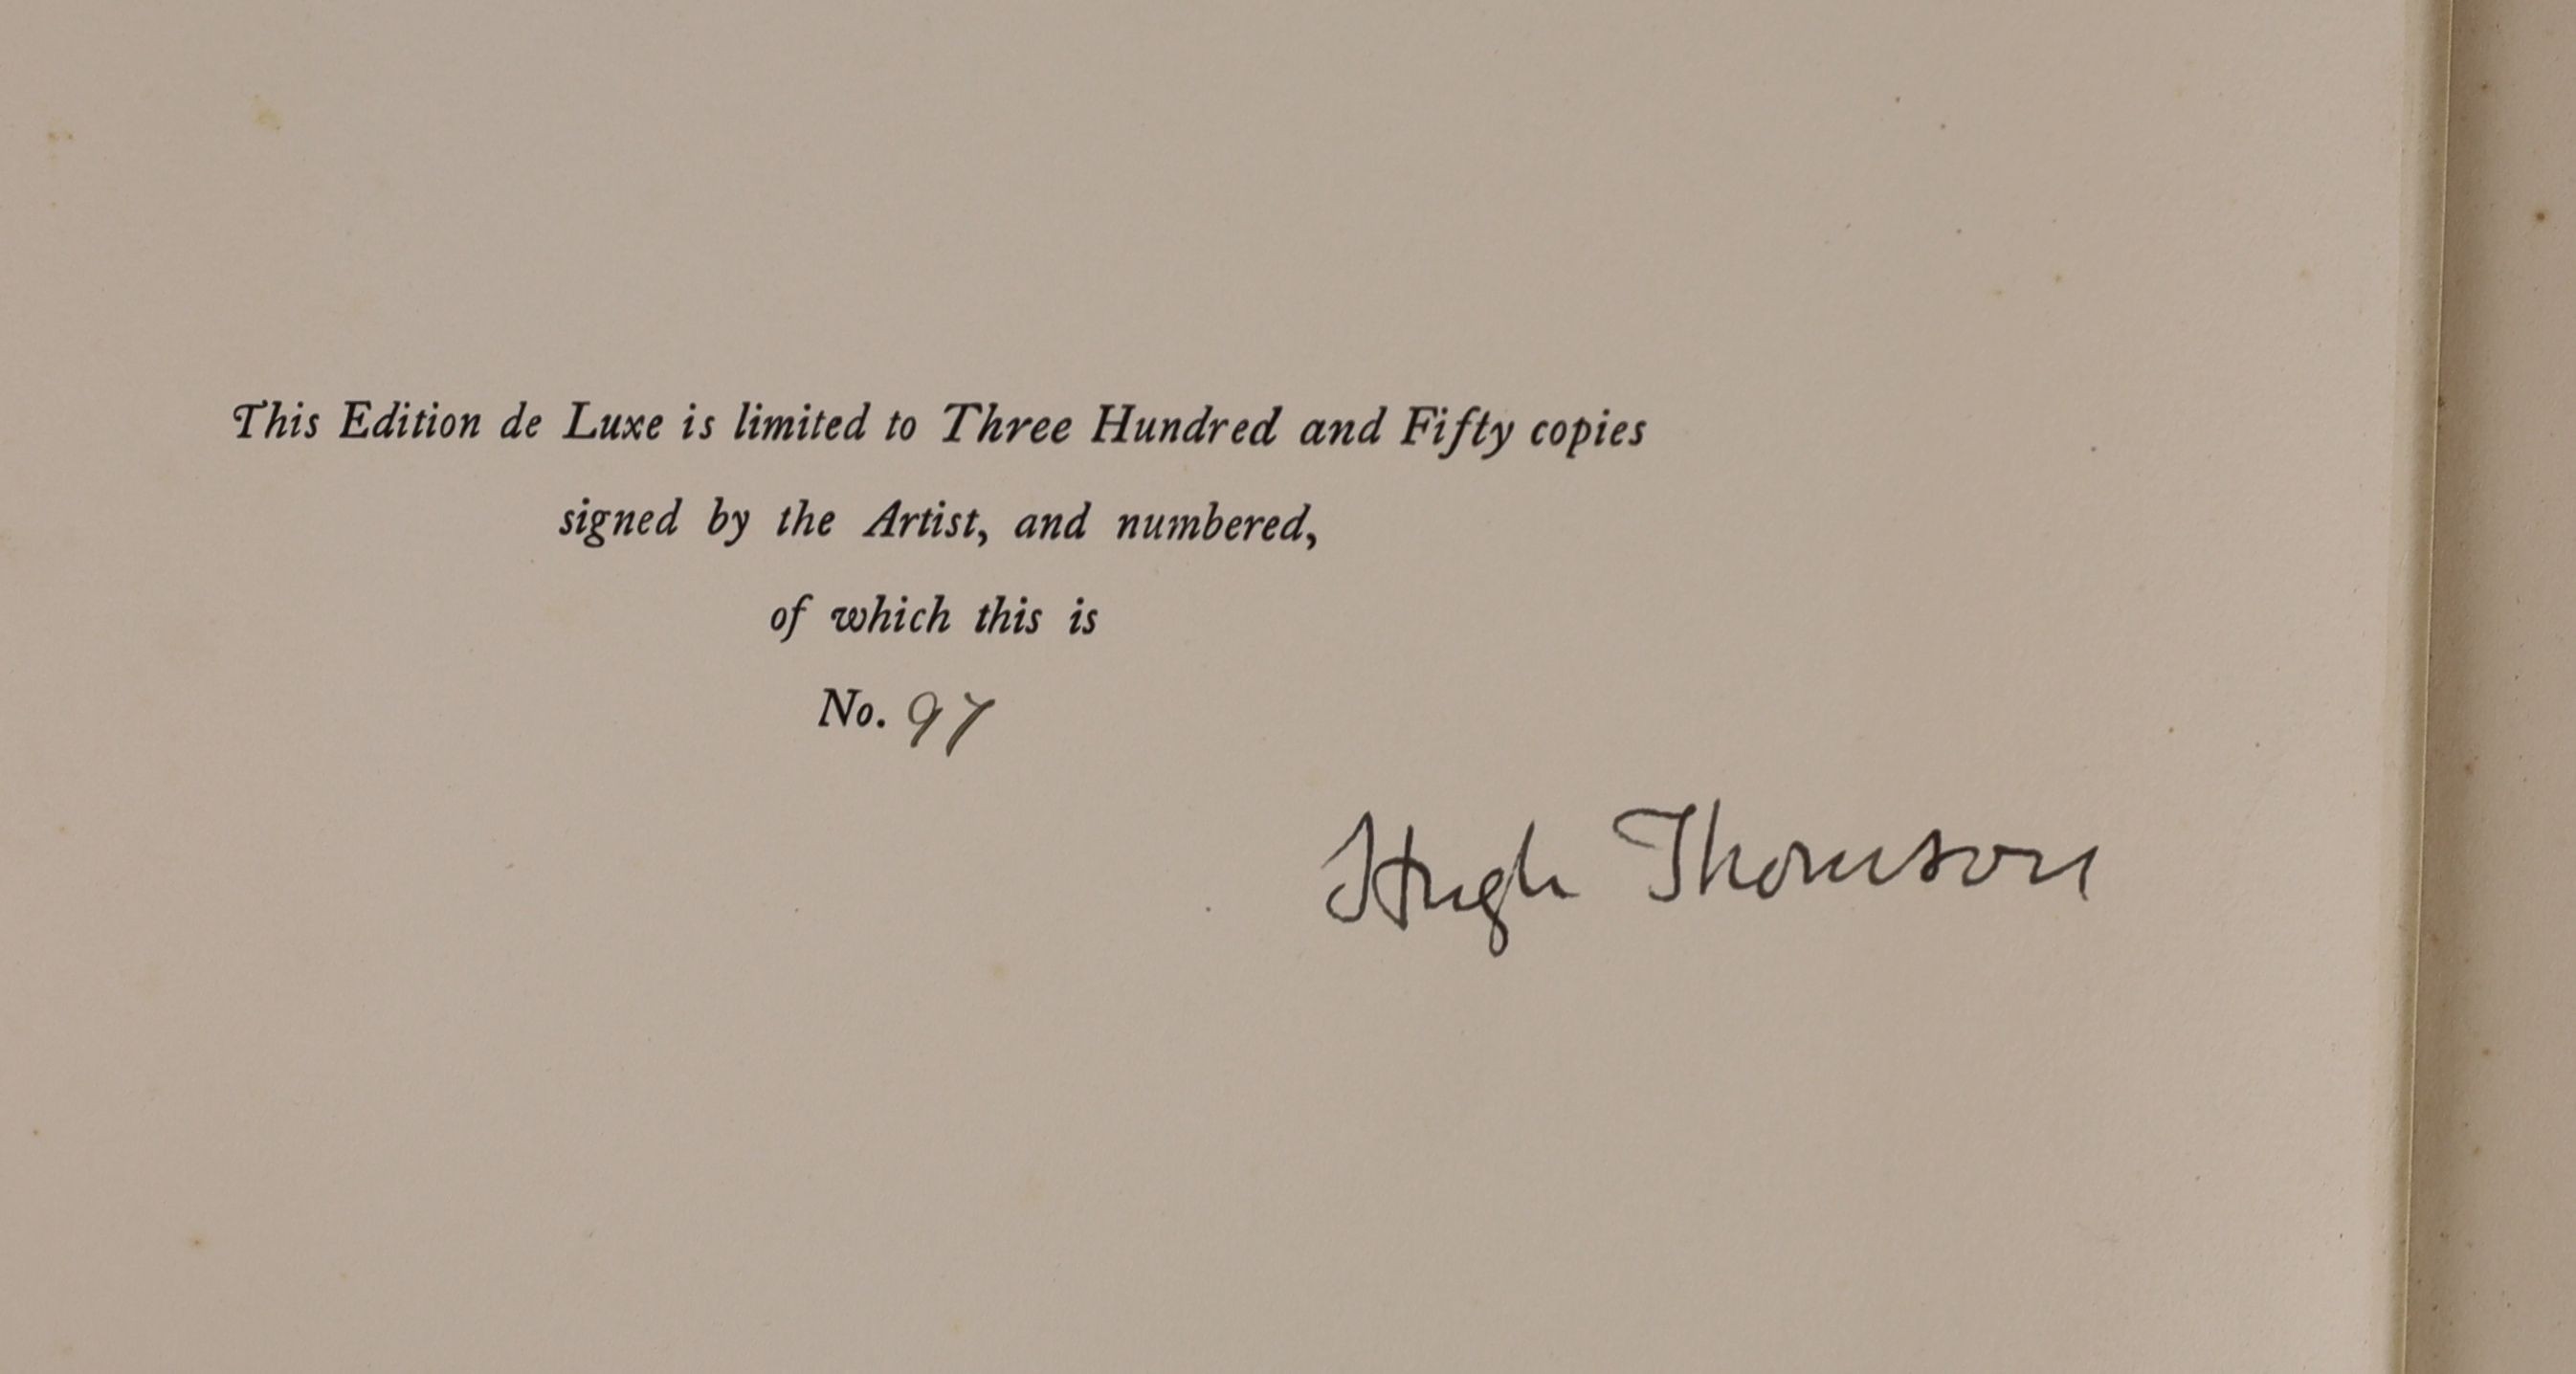 This Edition de Luxe is limited to Three Hundred and Fifty copies
signed by the Artist, and numbered,
of which this is
No. 97
Hugh Thomson